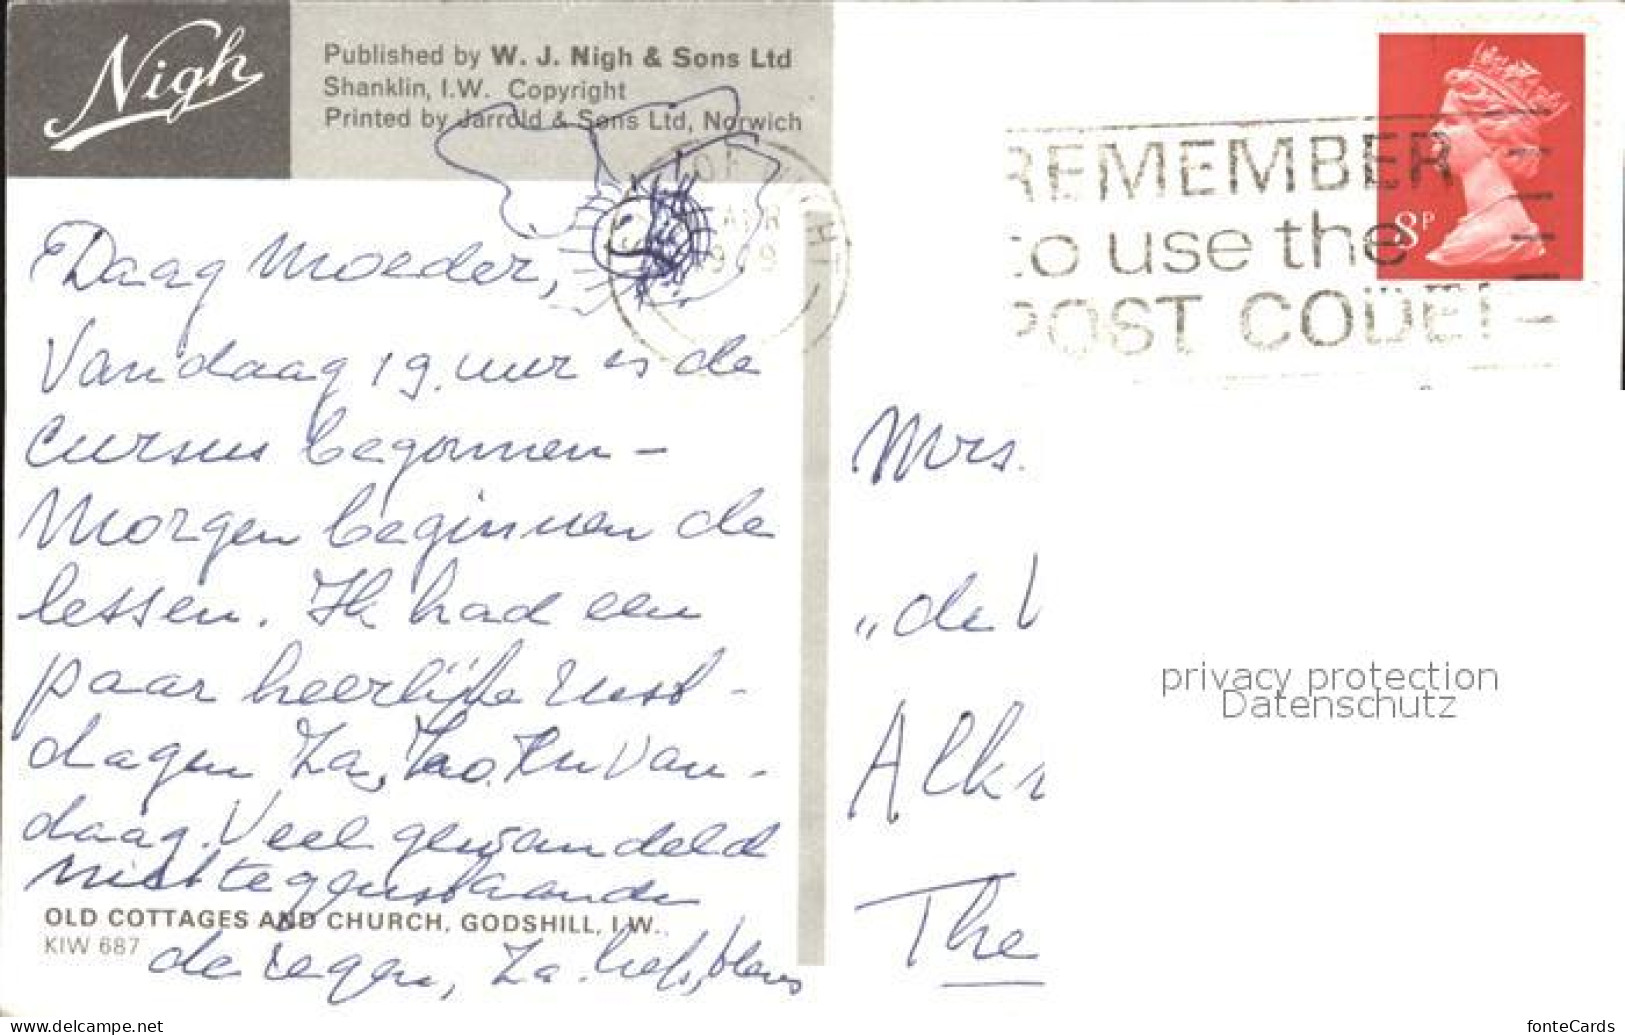 Nigh
Published by W. J. Nigh & Sons Ltd
Shanklin, I.W. Copyright
Printed by Jarrold & Sons Ltd, Norwich
REMEMBER
to use the
POST CODE
8P
Daag Moeder,
Vandaag 19. uur is de
Cursus begonnen –
Morgen beginnen de
lessen. Ik had een
paar heerlijke rust-
dagen Za, Zo. En Van-
daag. Veel gewandeld
niettegenstaande
OLD COTTAGES AND CHURCH, GODSHILL, I.W.
KIW 687
de regen, Za. liefs,
Mrs.
„de
Alk
The
privacy protection
Datenschutz
www.delcampe.net
fonteCards